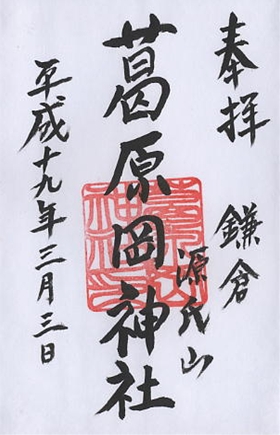 奉拝
鎌倉
源氏山
葛原岡神社
平成十九年三月三日